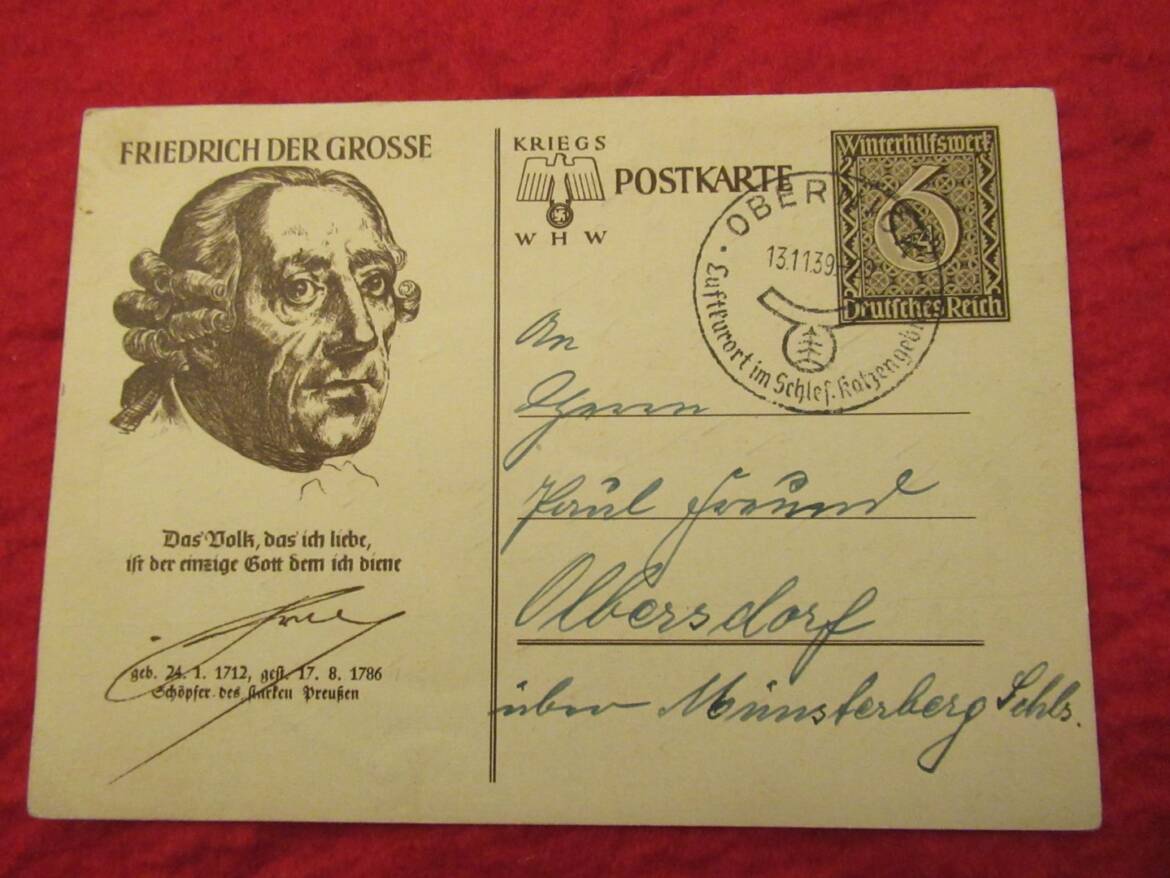 FRIEDRICH DER GROSSE
Das Volk, das ich liebe,
ist der einzige Gott dem ich diene
geb. 24. 1. 1712, gest. 17. 8. 1786
Schöpfer des starken Preußen
KRIEGS
WHW
POSTKARTE
Winterhilfswerk
6
Deutsches Reich
OBER
13.11.39
Luftkurort im Schles. Katzengeb
An
Herrn
Paul Freund
Olbersdorf
über Münsterberg Schls.